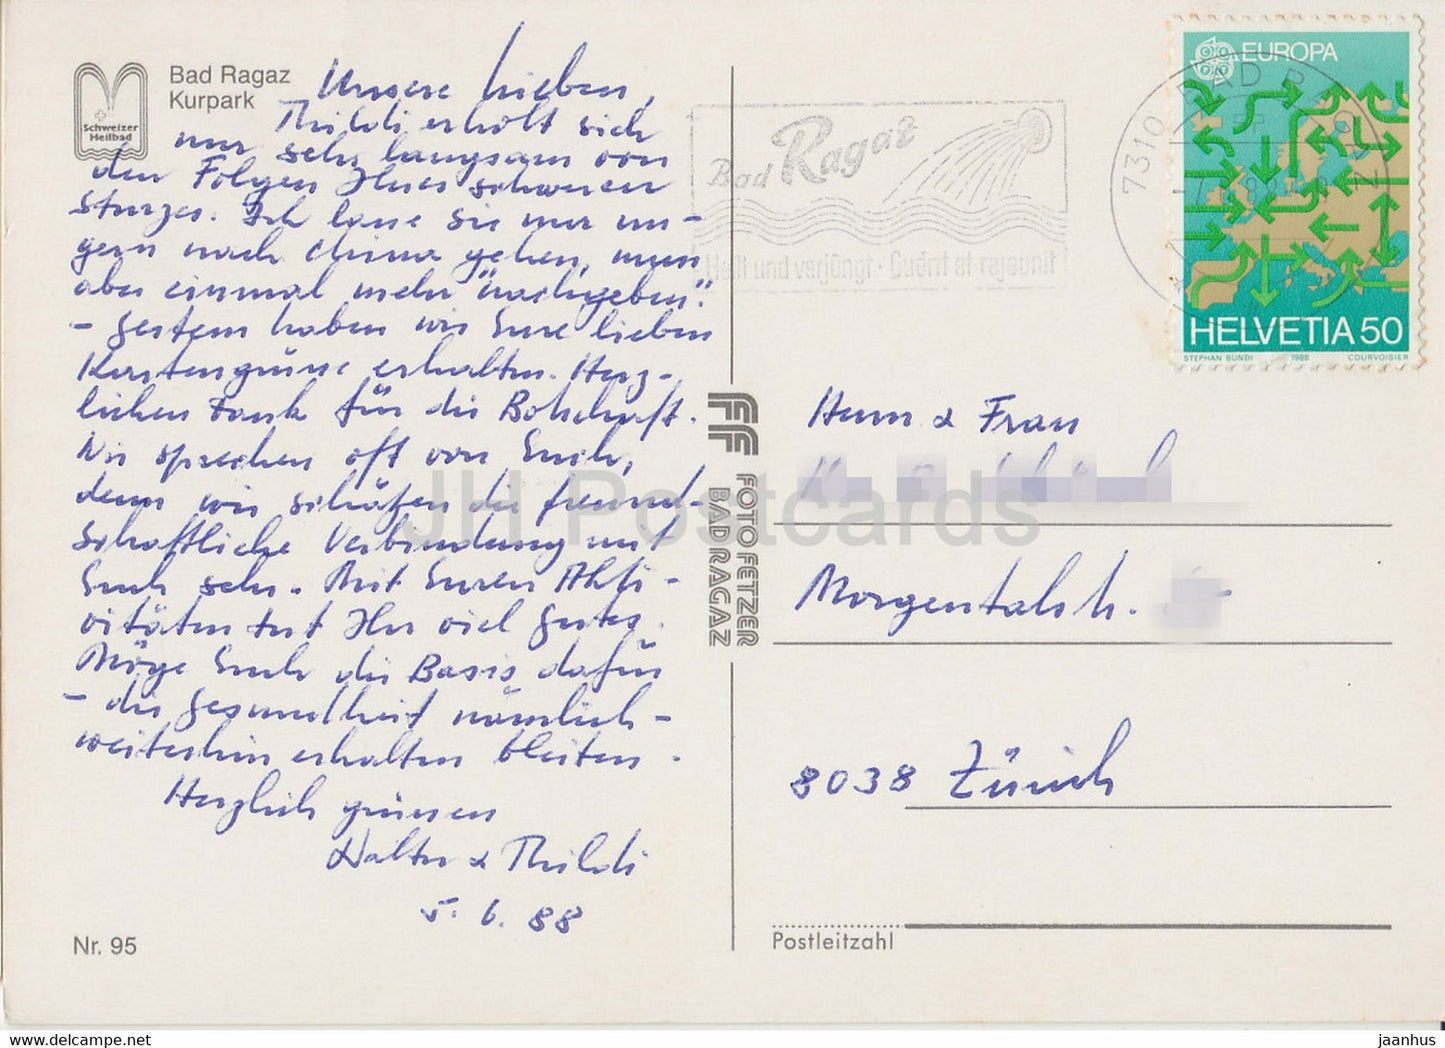 Bad Ragaz
Kurpark
Schweizer
Heilbad
Unsere Lieben,
Thildi erholt sich
nur sehr langsam von
den Folgen Ihres schweren
Sturzes. Ich lasse sie nur un-
gern nach China gehen, muss
aber einmal mehr "nachgeben".
- Gestern haben wir Eure lieben
Kartengrüsse erhalten. Herz-
lichen Dank für die Botschaft.
Wir sprechen oft von Euch,
denn wir schätzen die freund-
schaftliche Verbindung mit
Euch sehr. Mit Euren Akti-
vitäten tut Ihr viel Gutes.
Möge Euch die Basis dafür
- die Gesundheit nämlich -
weiterhin erhalten bleiben.
Herzlich grüssen
Walter & Thildi
5.6.88
Nr. 95
FOTO FETZER
BAD RAGAZ
JH Postcards
Bad Ragaz
Heilt und verjüngt · Guérit et rajeunit
7310 BAD RAGAZ
EUROPA
HELVETIA 50
STEPHAN BUNDI 1988 COURVOISIER
Herrn & Frau
Morgentalstr.
8038 Zürich
Postleitzahl
jaanhus